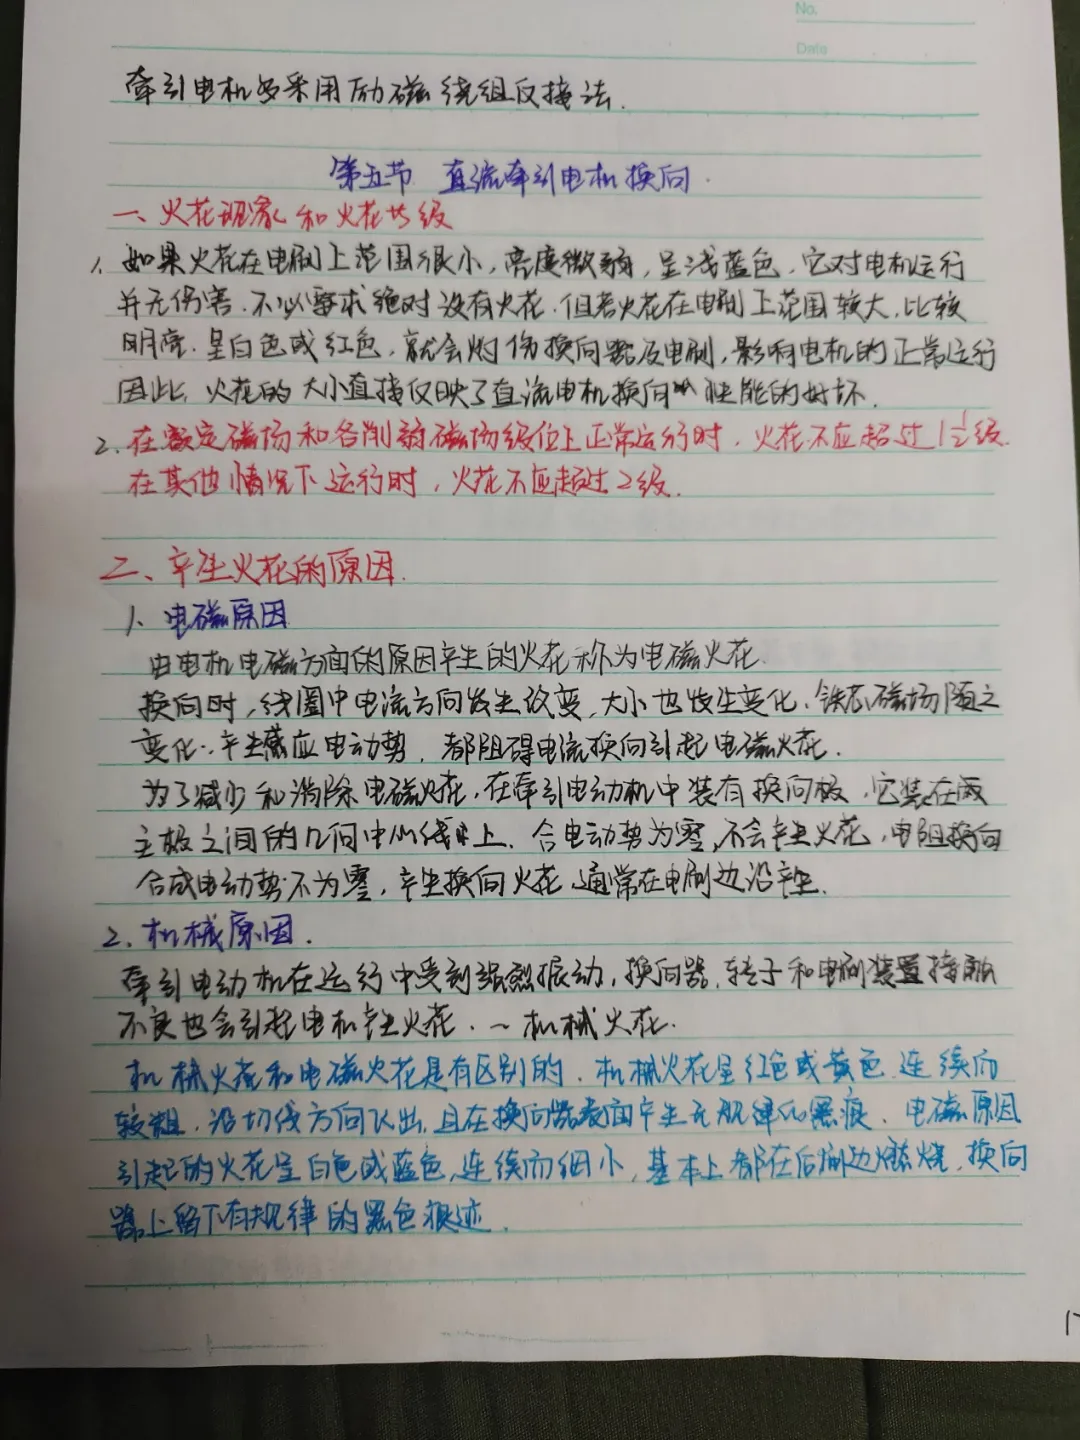 No.
Date
牵引电机多采用励磁绕组反接法.
第五节 直流牵引电机换向.
一、火花现象和火花等级
1. 如果火花在电刷上范围很小,亮度微弱,呈浅蓝色,它对电机运行
并无伤害.不必要求绝对没有火花.但若火花在电刷上范围较大,比较
明亮.呈白色或红色,就会灼伤换向器及电刷,影响电机的正常运行
因此,火花的大小直接反映了直流电机换向性能的好坏.
2.在额定磁场和各削弱磁场级位上正常运行时,火花不应超过1½级.
在其他情况下运行时,火花不应超过2级.
二、产生火花的原因.
1、电磁原因
由电机电磁方面的原因产生的火花称为电磁火花.
换向时,线圈中电流方向发生改变,大小也发生变化.铁芯磁场随之
变化.产生感应电动势,都阻碍电流换向引起电磁火花.
为了减少和消除电磁火花,在牵引电动机中装有换向极,它装在两
主极之间的几何中心线上.合电动势为零,不会产生火花,电阻换向
合成电动势不为零,产生换向火花,通常在电刷边沿产生.
2、机械原因.
牵引电动机在运行中受到强烈振动,换向器,转子和电刷装置接触
不良也会引起电机产生火花.~机械火花.
机械火花和电磁火花是有区别的.机械火花呈红色或黄色.连续而
较粗.沿切线方向飞出,且在换向器表面产生无规律的黑痕.电磁原因
引起的火花呈白色或蓝色,连续而细小,基本上都在后刷边燃烧,换向
器上留下有规律的黑色痕迹.